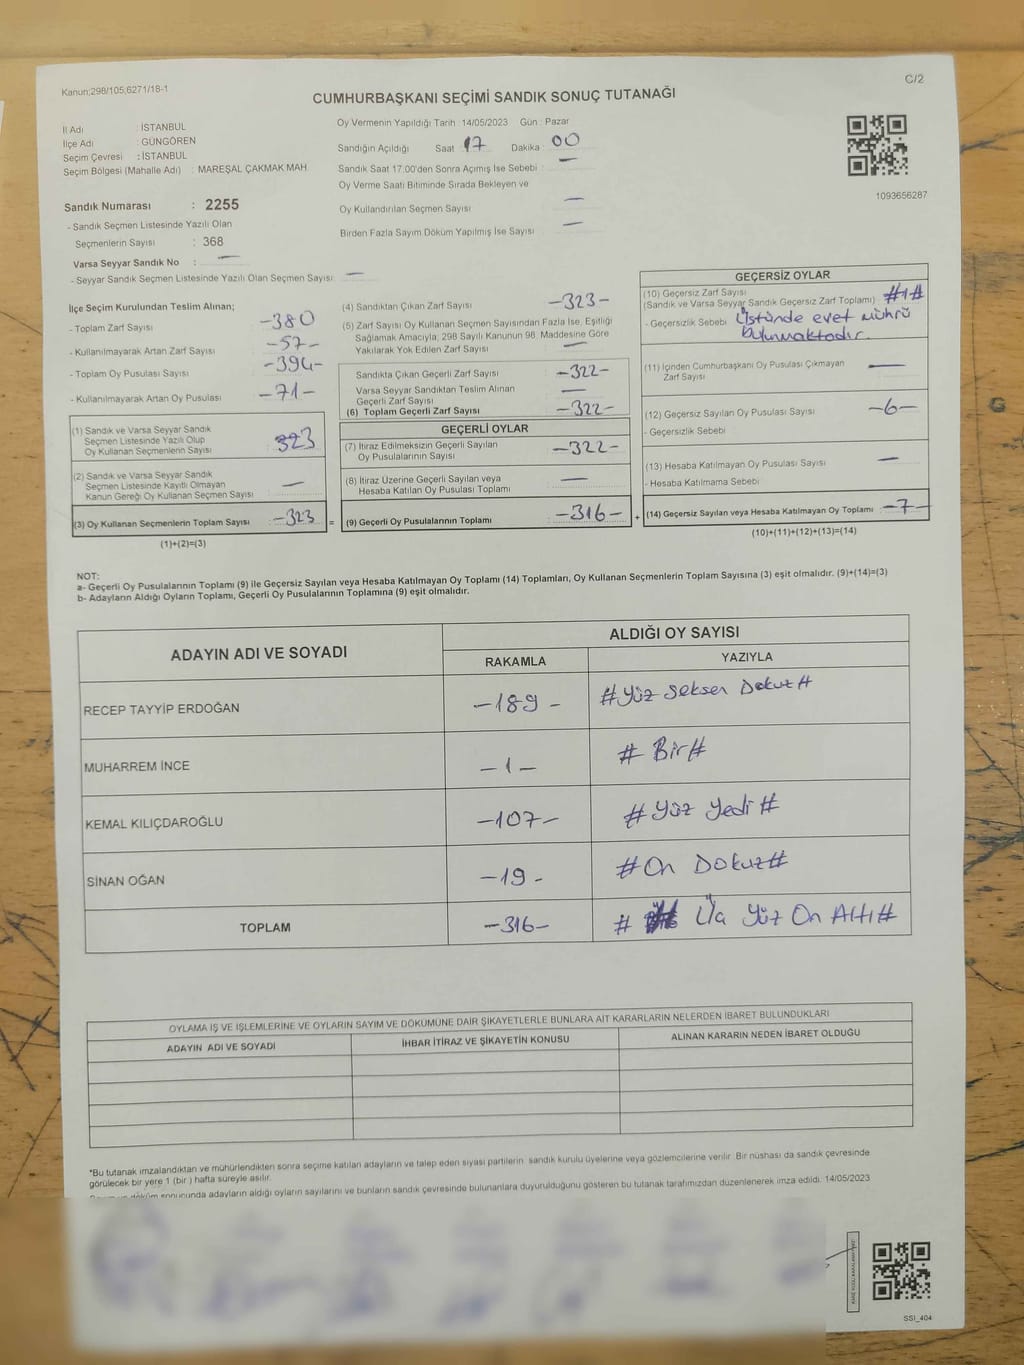 Kanun;298/105;6271/18-1
C/2
CUMHURBAŞKANI SEÇİMİ SANDIK SONUÇ TUTANAĞI
İl Adı : İSTANBUL
İlçe Adı : GÜNGÖREN
Seçim Çevresi : İSTANBUL
Seçim Bölgesi (Mahalle Adı) : MAREŞAL ÇAKMAK MAH.
Sandık Numarası : 2255
- Sandık Seçmen Listesinde Yazılı Olan
Seçmenlerin Sayısı : 368
Varsa Seyyar Sandık No : —
- Seyyar Sandık Seçmen Listesinde Yazılı Olan Seçmen Sayısı: —
Oy Vermenin Yapıldığı Tarih : 14/05/2023 Gün : Pazar
Sandığın Açıldığı Saat : 17 Dakika : 00
Sandık Saat 17:00'den Sonra Açımış İse Sebebi : —
Oy Verme Saati Bitiminde Sırada Bekleyen ve
Oy Kullandırılan Seçmen Sayısı —
Birden Fazla Sayım Döküm Yapılmış İse Sayısı —
1093656287
İlçe Seçim Kurulundan Teslim Alınan;
- Toplam Zarf Sayısı -380
- Kullanılmayarak Artan Zarf Sayısı -57-
- Toplam Oy Pusulası Sayısı -394-
- Kullanılmayarak Artan Oy Pusulası -71-
(1) Sandık ve Varsa Seyyar Sandık
Seçmen Listesinde Yazılı Olup
Oy Kullanan Seçmenlerin Sayısı 323
(2) Sandık ve Varsa Seyyar Sandık
Seçmen Listesinde Kayıtlı Olmayan
Kanun Gereği Oy Kullanan Seçmen Sayısı —
(3) Oy Kullanan Seçmenlerin Toplam Sayısı -323 =
(1)+(2)=(3)
(4) Sandıktan Çıkan Zarf Sayısı -323-
(5) Zarf Sayısı Oy Kullanan Seçmen Sayısından Fazla İse, Eşitliği
Sağlamak Amacıyla; 298 Sayılı Kanunun 98. Maddesine Göre
Yakılarak Yok Edilen Zarf Sayısı —
Sandıkta Çıkan Geçerli Zarf Sayısı -322-
Varsa Seyyar Sandıktan Teslim Alınan
Geçerli Zarf Sayısı —
(6) Toplam Geçerli Zarf Sayısı -322-
GEÇERLİ OYLAR
(7) İtiraz Edilmeksizin Geçerli Sayılan
Oy Pusulalarının Sayısı -322-
(8) İtiraz Üzerine Geçerli Sayılan veya
Hesaba Katılan Oy Pusulası Toplamı —
(9) Geçerli Oy Pusulalarının Toplamı -316- +
GEÇERSİZ OYLAR
(10) Geçersiz Zarf Sayısı
(Sandık ve Varsa Seyyar Sandık Geçersiz Zarf Toplamı) #1#
- Geçersizlik Sebebi Üstünde evet mührü
bulunmaktadır.
(11) İçinden Cumhurbaşkanı Oy Pusulası Çıkmayan
Zarf Sayısı —
(12) Geçersiz Sayılan Oy Pusulası Sayısı -6-
- Geçersizlik Sebebi
(13) Hesaba Katılmayan Oy Pusulası Sayısı —
- Hesaba Katılmama Sebebi
(14) Geçersiz Sayılan veya Hesaba Katılmayan Oy Toplamı -7-
(10)+(11)+(12)+(13)=(14)
NOT:
a- Geçerli Oy Pusulalarının Toplamı (9) ile Geçersiz Sayılan veya Hesaba Katılmayan Oy Toplamı (14) Toplamları, Oy Kullanan Seçmenlerin Toplam Sayısına (3) eşit olmalıdır. (9)+(14)=(3)
b- Adayların Aldığı Oyların Toplamı, Geçerli Oy Pusulalarının Toplamına (9) eşit olmalıdır.
ADAYIN ADI VE SOYADI
ALDIĞI OY SAYISI
RAKAMLA YAZIYLA
RECEP TAYYİP ERDOĞAN -189- #Yüz Seksen Dokuz#
MUHARREM İNCE -1- # Bir#
KEMAL KILIÇDAROĞLU -107- # Yüz Yedi #
SİNAN OĞAN -19- #On Dokuz#
TOPLAM -316- # Üç Yüz On Altı#
OYLAMA İŞ VE İŞLEMLERİNE VE OYLARIN SAYIM VE DÖKÜMÜNE DAİR ŞİKAYETLERLE BUNLARA AİT KARARLARIN NELERDEN İBARET BULUNDUKLARI
ADAYIN ADI VE SOYADI İHBAR İTİRAZ VE ŞİKAYETİN KONUSU ALINAN KARARIN NEDEN İBARET OLDUĞU
*Bu tutanak imzalandıktan ve mühürlendikten sonra seçime katılan adayların ve talep eden siyasi partilerin sandık kurulu üyelerine veya gözlemcilerine verilir. Bir nüshası da sandık çevresinde
görülecek bir yere 1 (bir ) hafta süreyle asılır.
döküm sonucunda adayların aldığı oyların sayılarını ve bunların sandık çevresinde bulunanlara duyurulduğunu gösteren bu tutanak tarafımızdan düzenlenerek imza edildi. 14/05/2023
SSI_404